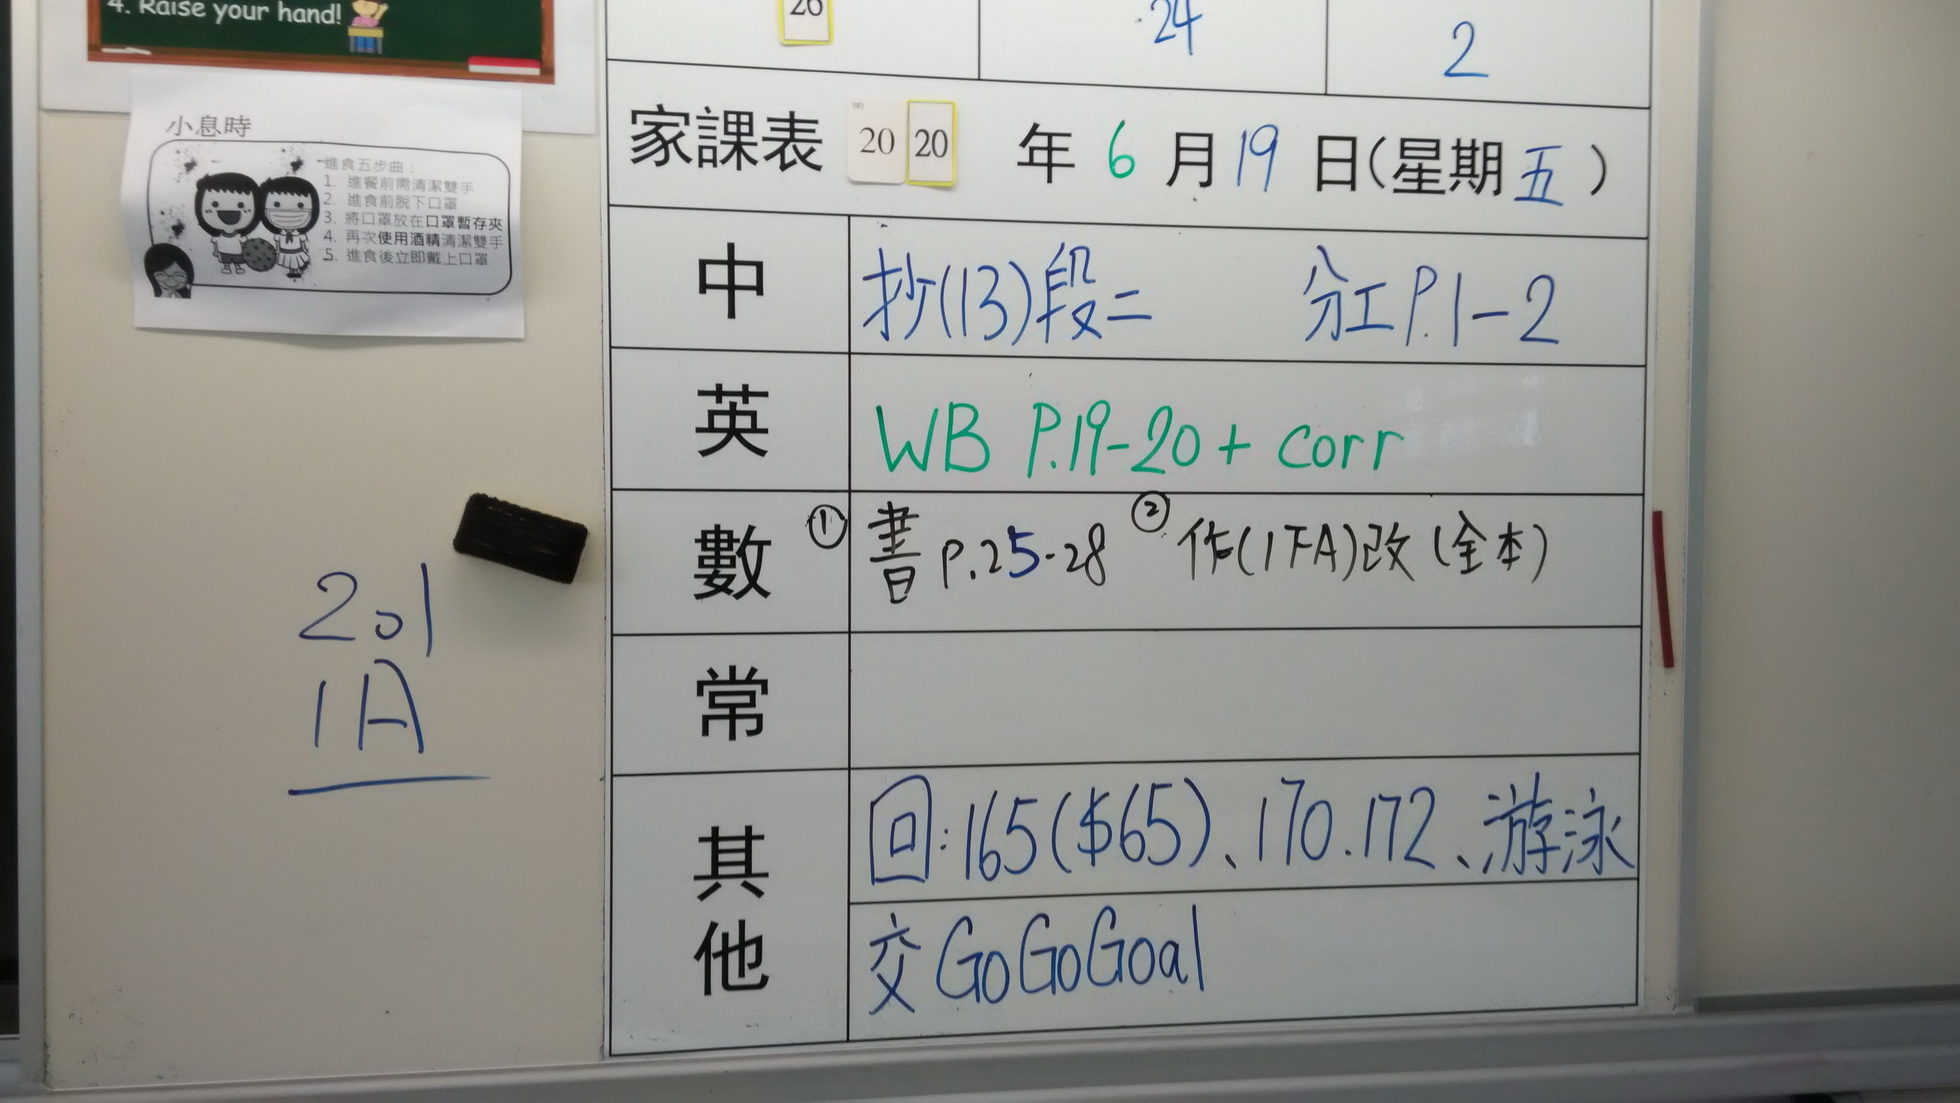 4. Raise your hand!
26 24 2
小息時
進食五步曲：
1. 進餐前需清潔雙手
2. 進食前脫下口罩
3. 將口罩放在口罩暫存夾
4. 再次使用酒精清潔雙手
5. 進食後立即戴上口罩
家課表 20 20 年 6 月 19 日(星期五)
中 抄(13)段二 分工P.1-2
英 WB P.19-20 + corr
數 ① 書 P.25-28 ② 作(1下A)改(全本)
常
其他 回:165($65)、170.172、游泳
交 GoGoGoal
201
1A